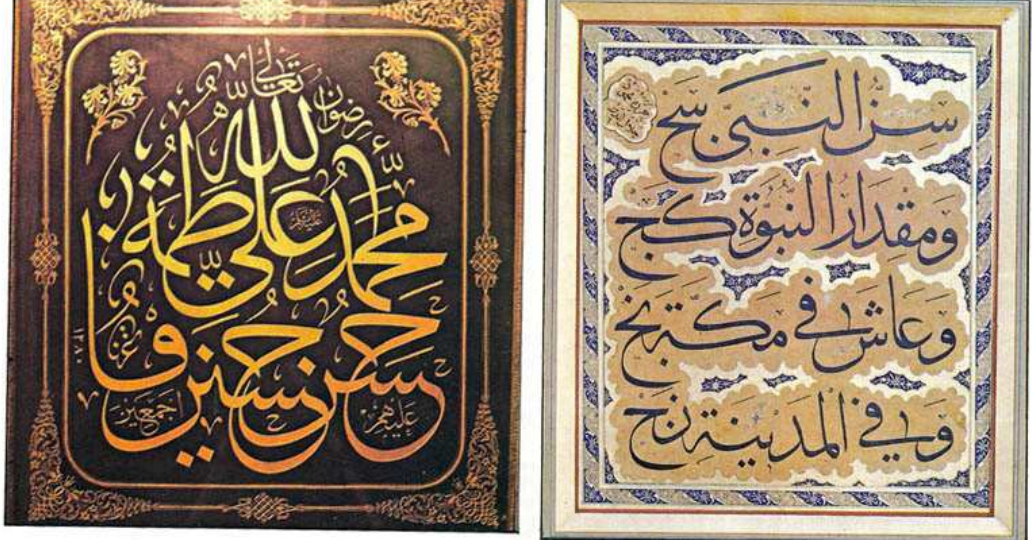 رضوان الله تعالى
محمد علي فاطمة
حسن حسين
عليهم أجمعين
١٣٨٠
سن النبي سج
ومقدار النبوة كج
وعاش في مكة نج
وفي المدينة